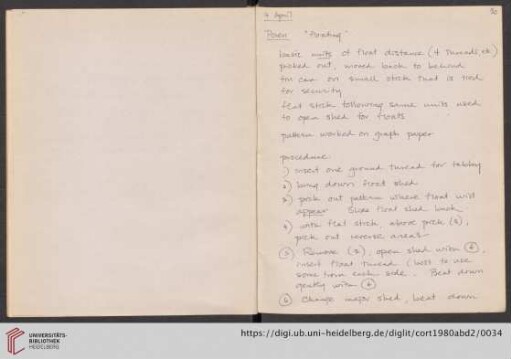 4 April
30
Peru "floating"
basic units of float distance (4 threads, etc)
picked out, moved back to behind
the can on small stick that is tied
for security
flat stick following same units used
to open shed for floats
pattern worked on graph paper
procedure
1) insert one ground thread for tabby
2) bring down float shed
3) pick out pattern where float will
appear Slide float shed back
4) with flat stick above pick (3),
pick out reverse areas
5) Remove (3), open shed with 4,
insert float thread (wise to use
some from each side. Beat down
gently with 4
6) Change major shed, beat down
UNIVERSITÄTS-
BIBLIOTHEK
HEIDELBERG
https://digi.ub.uni-heidelberg.de/diglit/cort1980abd2/0034